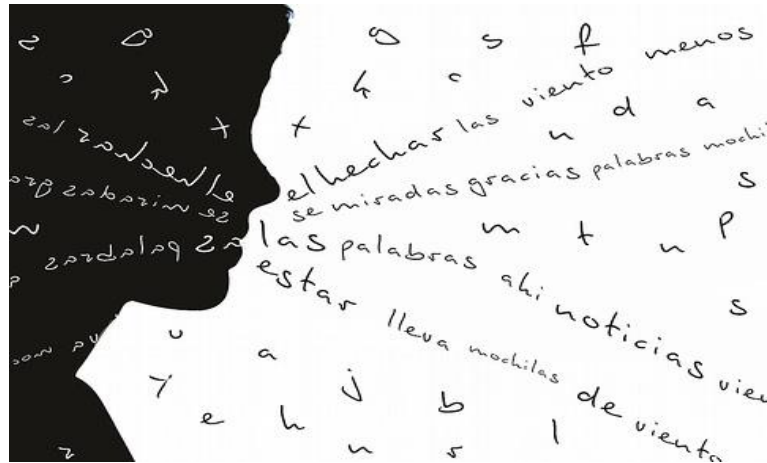 g s f
k c
x
el hechar las viento menos
n d a
se miradas gracias palabras mochil
s
m t n p
las palabras ahi noticias vien
s
estar lleva mochilas de viento
v a
y e h j b
n r l